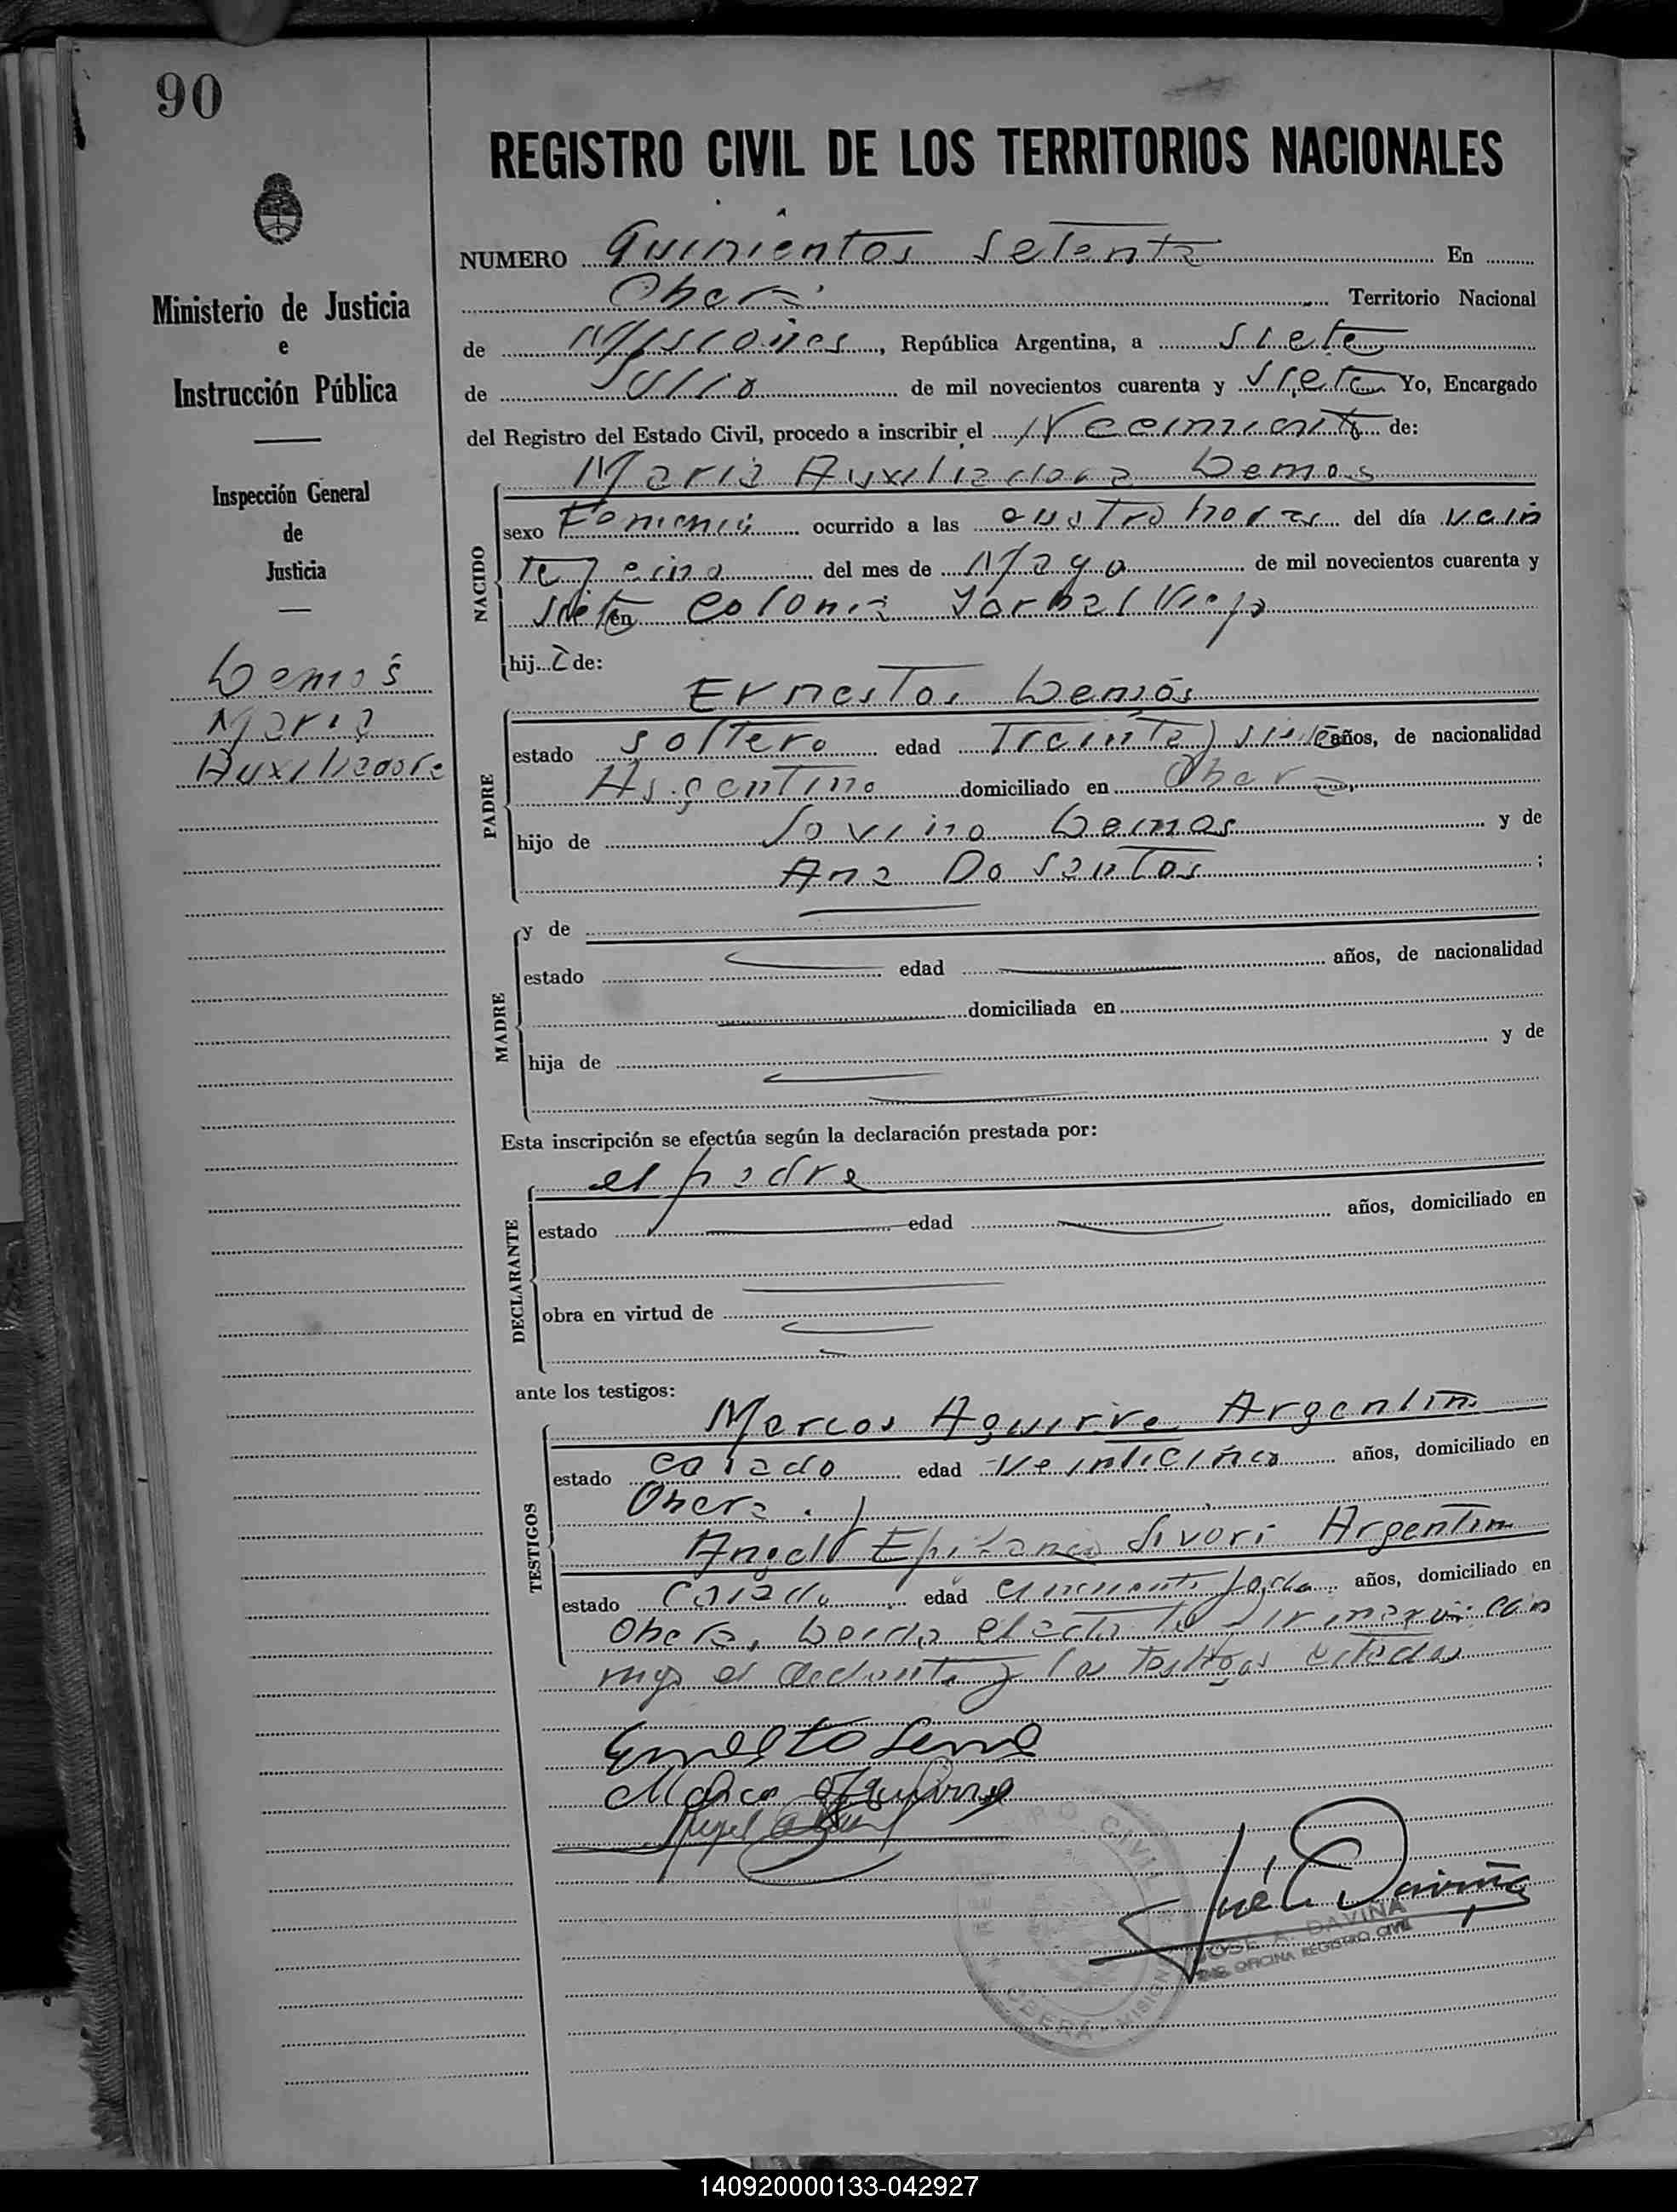 90
REGISTRO CIVIL DE LOS TERRITORIOS NACIONALES
Ministerio de Justicia
e
Instrucción Pública
Inspección General
de
Justicia
Lemos
Maria
Auxiliadora
NUMERO Quinientos setenta En
Obera Territorio Nacional
de Misiones, República Argentina, a siete
de Julio de mil novecientos cuarenta y siete Yo, Encargado
del Registro del Estado Civil, procedo a inscribir el Nacimiento de:
Maria Auxiliadora Lemos
NACIDO
sexo Femenino ocurrido a las cuatro horas del día vein
te y cinco del mes de Mayo de mil novecientos cuarenta y
siete en Colonia Yerbal Viejo
hija de:
Ernestos Lemos
PADRE
estado soltero edad Treinta y siete años, de nacionalidad
Argentino domiciliado en Obera
hijo de Lemos y de
Ana Do Santos ;
MADRE
y de
estado edad años, de nacionalidad
domiciliada en
hija de y de
Esta inscripción se efectúa según la declaración prestada por:
el padre
DECLARANTE
estado edad años, domiciliado en
obra en virtud de
ante los testigos:
Marcos Aguirre Argentin
TESTIGOS
estado casado edad veinticinco años, domiciliado en
Obera. y
Angel Epifanio Sivori Argentin
estado casado edad cincuenta y ocho años, domiciliado en
Obera, Leida el acta la firmaron con
migo el declarante y los testigos citados
Ernesto Lemo
Marco Aguirre
Angel
José A. Daviña
JOSE A. DAVIÑA
ENC. OFICINA REGISTRO CIVIL
REGISTRO CIVIL
OBERA - MISIONES
140920000133-042927